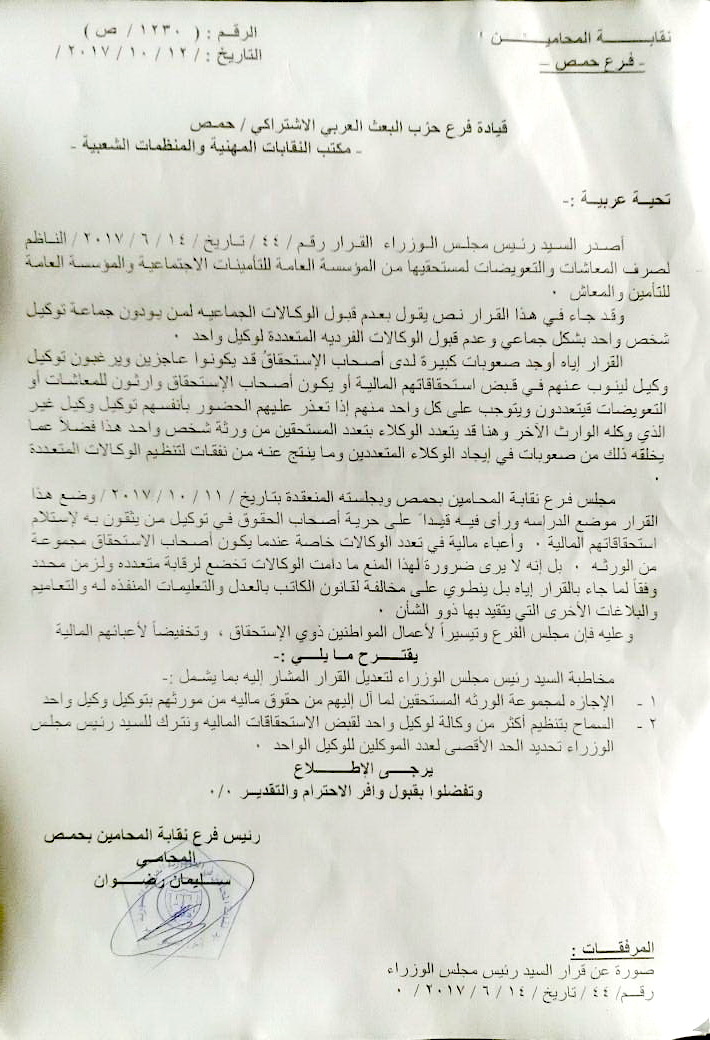 نقابــــة المحاميــــن
- فـرع حمـص -
الرقـم : ( ١٢٣٠ / ص )
التاريخ : / ١٢ / ١٠ / ٢٠١٧ /
قيادة فرع حزب البعث العربي الاشتراكي / حمـص
- مكتب النقابات المهنية والمنظمات الشعبية -
تحيـة عربيـــة :-
أصـدر السـيد رئـيس مجلـس الـوزراء القـرار رقـم / ٤٤ / تـاريخ / ١٤ / ٦ / ٢٠١٧ / النـاظم
لصرف المعاشات والتعويضات لمستحقيها من المؤسسة العامة للتأمينات الاجتماعية والمؤسسة العامة
للتأمين والمعاش ٠
وقـد جـاء فـي هـذا القـرار نـص يقـول بعـدم قبـول الوكـالات الجماعيـه لمـن يـودون جماعـة توكيـل
شخص واحد بشكل جماعي وعدم قبول الوكالات الفرديه المتعددة لوكيل واحد ٠
القرار إياه أوجد صعوبات كبيرة لـدى أصـحاب الإستحقاقُ قـد يكونـوا عـاجزين ويرغبون توكيـل
وكيـل لينـوب عـنهم فـي قـبض استحقاقاتهم الماليـة أو يكـون أصـحاب الإستحقاق وارثـون للمعاشـات أو
التعويضـات فيتعددون ويتوجب علـى كـل واحـد مـنهم إذا تعـذر علـيهم الحضـور بأنفسـهم توكيـل وكيـل غيـر
الذي وكله الوارث الآخر وهنا قد يتعدد الوكلاء بتعدد المستحقين من ورثة شخص واحـد هـذا فضـلاً عمـا
يخلقه ذلك من صعوبات في إيجاد الوكلاء المتعددين ومـا ينتج عنـه مـن نفقـات لتنظـيم الوكـالات المتعددة
٠
مجلس فـرع نقابـة المحـامين بحمـص وبجلسـته المنعقـدة بتـاريخ / ١١ / ١٠ / ٢٠١٧ / وضـع هـذا
القرار موضـع الدراسـه ورأى فيـه قيـداً علـى حريـة أصـحاب الحقـوق فـي توكيـل مـن يثقـون بـه لإستلام
استحقاقاتهم الماليـة ٠ وأعبـاء ماليـة فـي تعـدد الوكـالات خاصـة عنـدما يكـون أصـحاب الاستحقاق مجموعـة
من الورثـه ٠ بل إنه لا يرى ضرورة لهذا المنع ما دامت الوكالات تخضع لرقابة متعدده ولزمن محـدد
وفقاً لما جاء بالقرار إياه بل ينطوي على مخالفة لقانون الكاتب بالعدل والتعليمات المنفذه لـه والتعـاميم
والبلاغات الأخرى التي يتقيد بها ذوو الشأن ٠
وعليه فإن مجلس الفرع وتيسيراً لأعمال المواطنين ذوي الإستحقاق ، وتخفيضاً لأعبائهم المالية
يقتــــرح ما يلي :-
مخاطبة السيد رئيس مجلس الوزراء لتعديل القرار المشار إليه بما يشمل :-
١ - الإجازه لمجموعة الورثه المستحقين لما آل إليهم من حقوق ماليه من مورثهم بتوكيل وكيل واحد
٢ - السماح بتنظيم أكثر من وكالة لوكيل واحد لقبض الاستحقاقات الماليه ونترك للسيد رئيس مجلـس
الوزراء تحديد الحد الأقصى لعدد الموكلين للوكيل الواحد ٠
يرجــى الإطــــلاع
وتفضلوا بقبول وافر الاحترام والتقديـر ٠/٠
رئيس فرع نقابة المحامين بحمـص
المحامـي
ســليمان رضــوان
المرفقــات :
صورة عن قرار السيد رئيس مجلس الوزراء
رقـم/ ٤٤ / تاريخ / ١٤ / ٦ / ٢٠١٧ / ٠